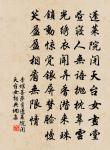 蓬萊院閉天台女畫堂
晝寢人無語拋枕翠雲
光繡衣聞異香潛來珠
鎖動驚覺銀屏夢臉慢
笑盈盈相看無限情
李煜菩薩蠻蓬萊院閉
天台女